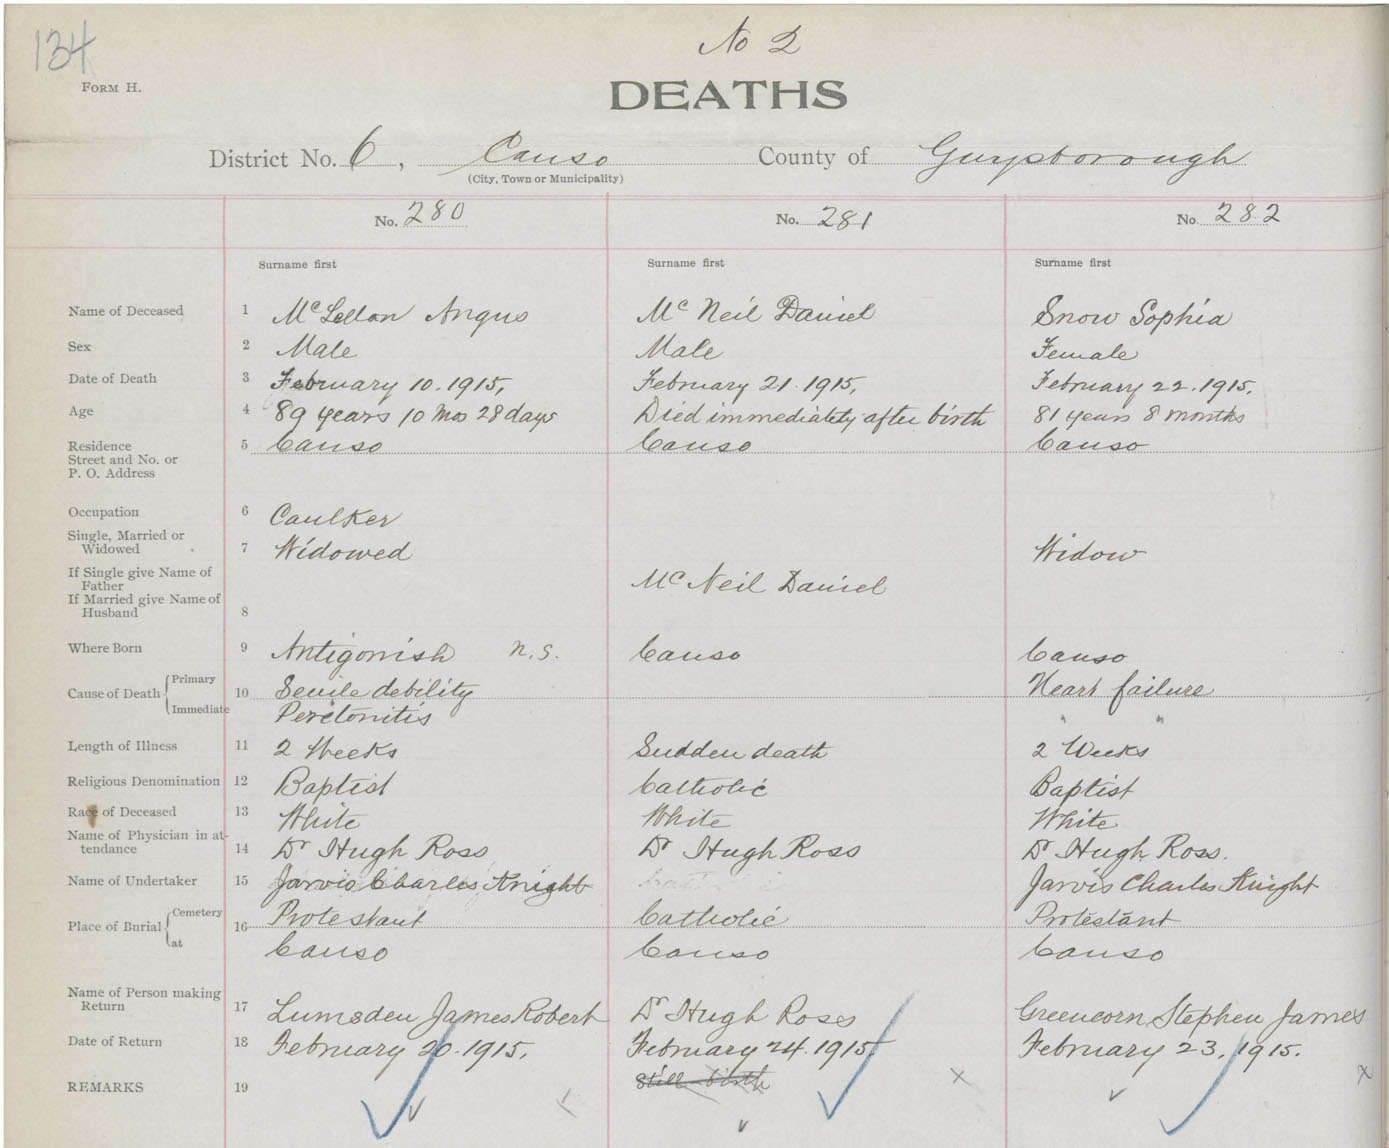 134
No 2
FORM H.
DEATHS
District No. 6, Canso County of Guysborough
(City, Town or Municipality)
No. 280 No. 281 No. 282
Surname first Surname first Surname first
Name of Deceased 1 McLellan Angus McNeil Daniel Snow Sophia
Sex 2 Male Male Female
Date of Death 3 February 10. 1915, February 21. 1915, February 22. 1915.
Age 4 89 years 10 Mos 28 days Died immediately after birth 81 years 8 months
Residence 5 Canso Canso Canso
Street and No. or
P. O. Address
Occupation 6 Caulker
Single, Married or
Widowed 7 Widowed Widow
If Single give Name of
Father McNeil Daniel
If Married give Name of
Husband 8
Where Born 9 Antigonish N.S. Canso Canso
Cause of Death Primary 10 Senile debility Heart failure
Immediate Peretonitis " "
Length of Illness 11 2 Weeks Sudden death 2 Weeks
Religious Denomination 12 Baptist Catholic Baptist
Race of Deceased 13 White White White
Name of Physician in at-
tendance 14 Dr Hugh Ross Dr Hugh Ross Dr Hugh Ross.
Name of Undertaker 15 Jarvis Charles Knight Jarvis Charles Knight
Place of Burial Cemetery 16 Protestant Catholic Protestant
at Canso Canso Canso
Name of Person making
Return 17 Lumsden James Robert Dr Hugh Ross Greencorn Stephen James
Date of Return 18 February 20. 1915. February 24. 1915. February 23, 1915.
REMARKS 19 Still birth